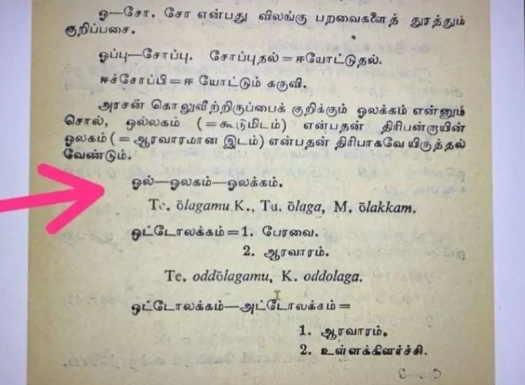 ஓ—சோ. சோ என்பது விலங்கு பறவைகளைத் துரத்தும்
குறிப்பசை.
ஓப்பு—சோப்பு. சோப்புதல் = ஈயோட்டுதல்.
ஈச்சோப்பி = ஈ யோட்டும் கருவி.
அரசன் கொலுவீற்றிருப்பைக் குறிக்கும் ஓலக்கம் என்னும்
சொல், ஒல்லகம் (= கூடுமிடம்) என்பதன் திரிபன்றாயின்
ஓலகம் (= ஆரவாரமான இடம்) என்பதன் திரிபாகவேயிருத்தல்
வேண்டும்.
ஓல்—ஓலகம்—ஓலக்கம்.
Te. ōlagamu K., Tu. ōlaga, M. ōlakkam.
ஒட்டோலக்கம் = 1. பேரவை.
2. ஆரவாரம்.
Te. oddōlagamu, K. oddolaga.
ஒட்டோலக்கம்—அட்டோலக்கம் =
1. ஆரவாரம்.
2. உள்ளக்கிளர்ச்சி.